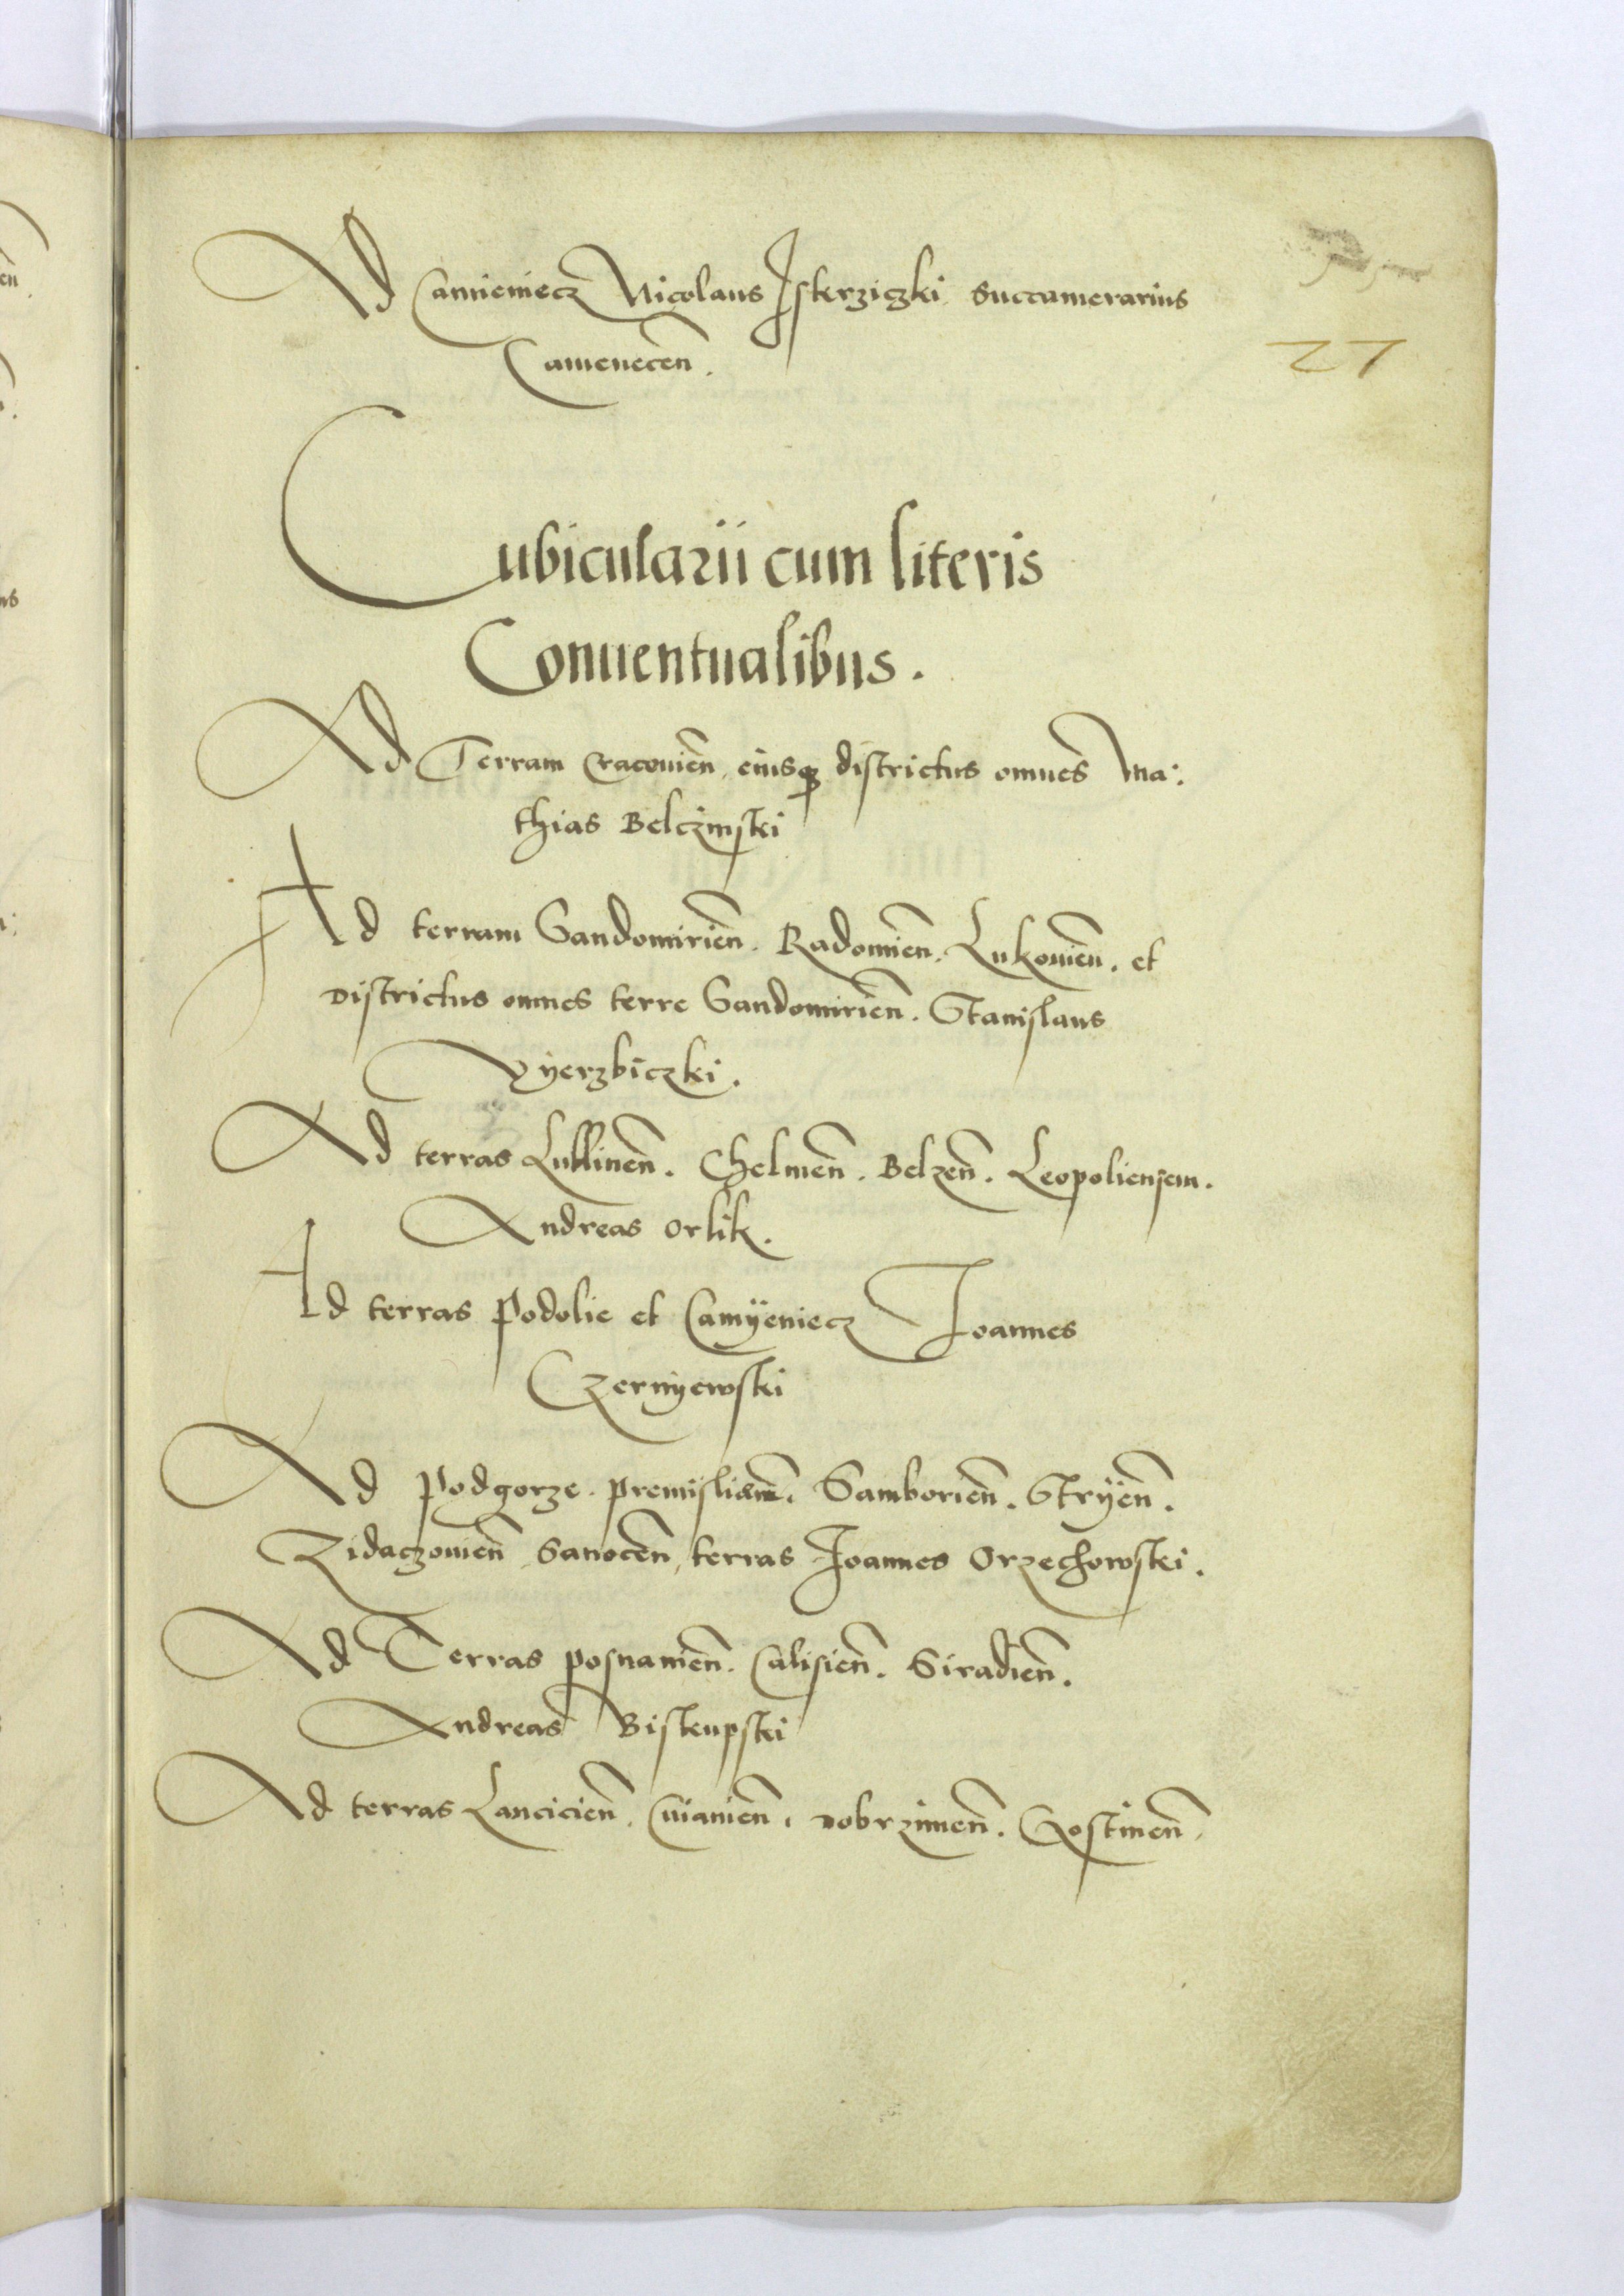 Ad Camieniecz Nicolaus Iskerziczki Succamerarius
27
Camenecen̄.
Cubicularii cum literis
Conuentualibus.
Ad Terram Cracouien̄. eiusq districtus omnes Ma:
thias Belczinski
Ad terram Sandomirien̄. Radomien̄. Lukouien̄. et
districtus omnes terre Sandomirien̄. Stanislaus
Vyerzbiczki.
Ad terras Lublinen̄. Chelmen̄. Belzen̄. Leopoliensem.
Andreas Orlik.
Ad terras Podolie et Camÿeniecz Ioannes
Czernyewski
Ad Podgorze. Premislien̄. Samborien̄. Strÿen̄.
Zidaczouien̄. Sanocen̄. terras Ioannes Orzechowski.
Ad Terras Posnanien̄. Calisien̄. Siradien̄.
Andreas Biskupski
Ad terras Lancicien̄. Cuiauien̄. Dobrzinien̄. Gostinen̄.